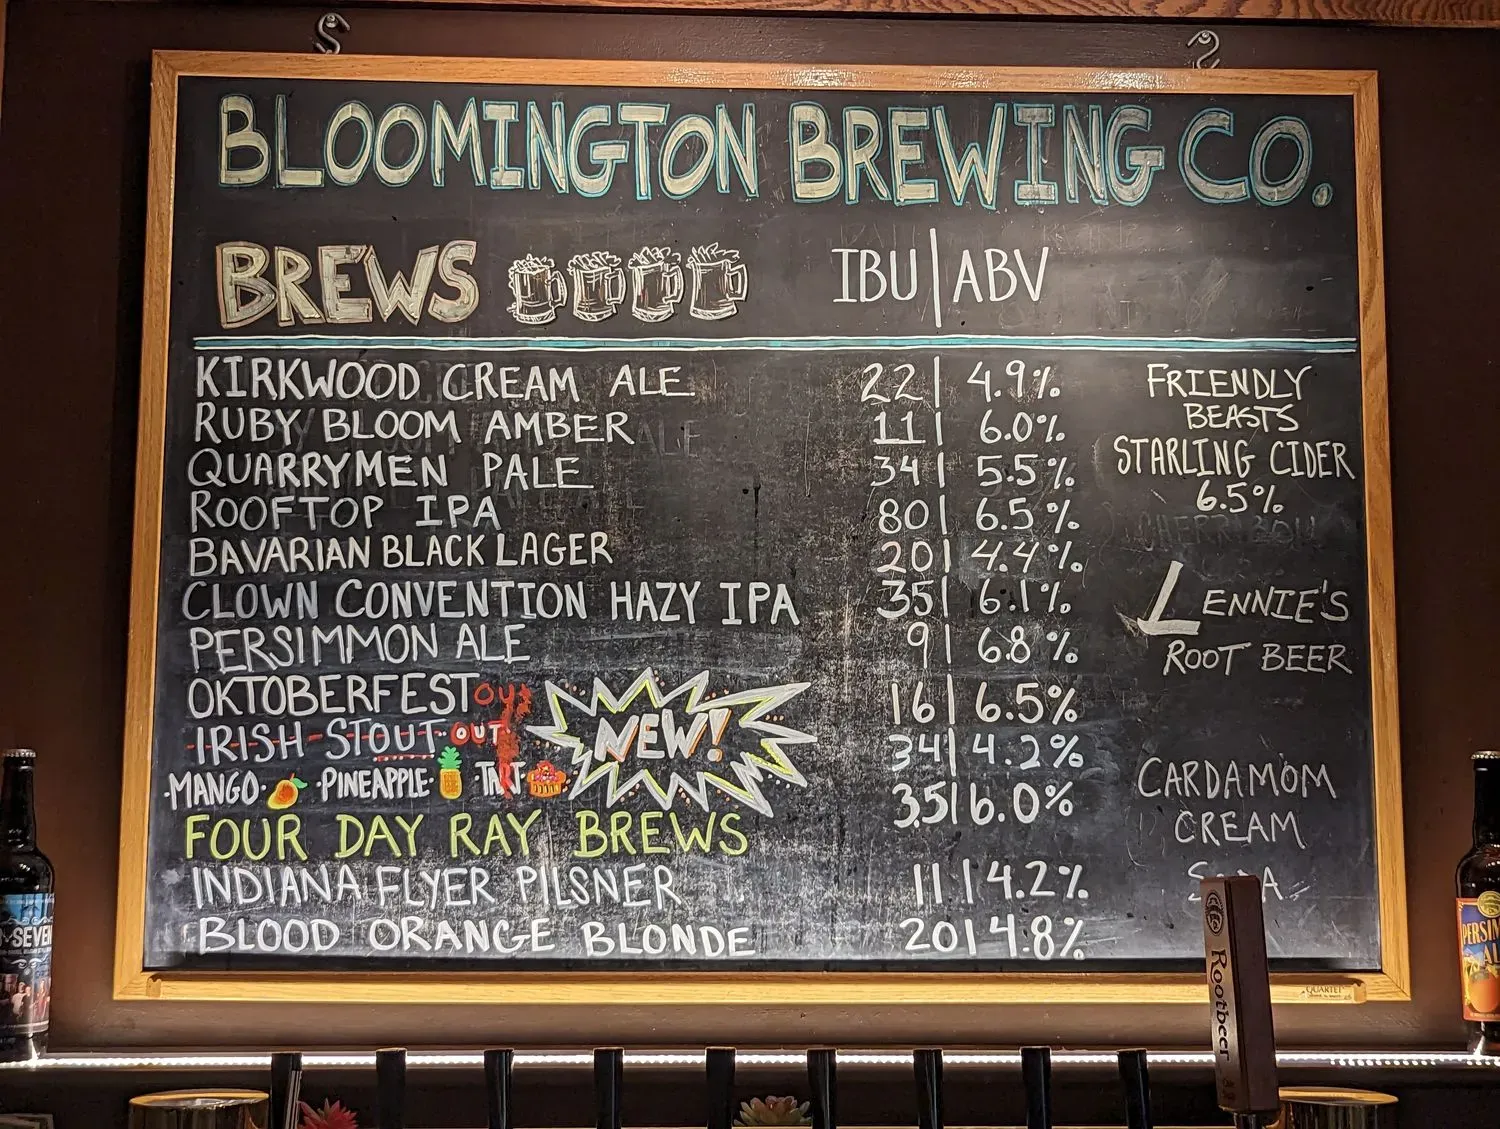 BLOOMINGTON BREWING CO.
BREWS IBU | ABV
KIRKWOOD CREAM ALE 22 | 4.9%
RUBY BLOOM AMBER 11 | 6.0%
QUARRYMEN PALE 34 | 5.5%
ROOFTOP IPA 80 | 6.5%
BAVARIAN BLACK LAGER 20 | 4.4%
CLOWN CONVENTION HAZY IPA 35 | 6.1%
PERSIMMON ALE 9 | 6.8%
OKTOBERFEST OUT 16 | 6.5%
IRISH STOUT OUT 34 | 4.2%
NEW!
·MANGO· ·PINEAPPLE· ·TART 3.5 | 6.0%
FOUR DAY RAY BREWS
INDIANA FLYER PILSNER 11 | 4.2%
BLOOD ORANGE BLONDE 20 | 4.8%
FRIENDLY
BEASTS
STARLING CIDER
6.5%
LENNIE'S
ROOT BEER
CARDAMOM
CREAM
SODA
QUARTET
Rootbeer
SEVEN
PERSIM
AL